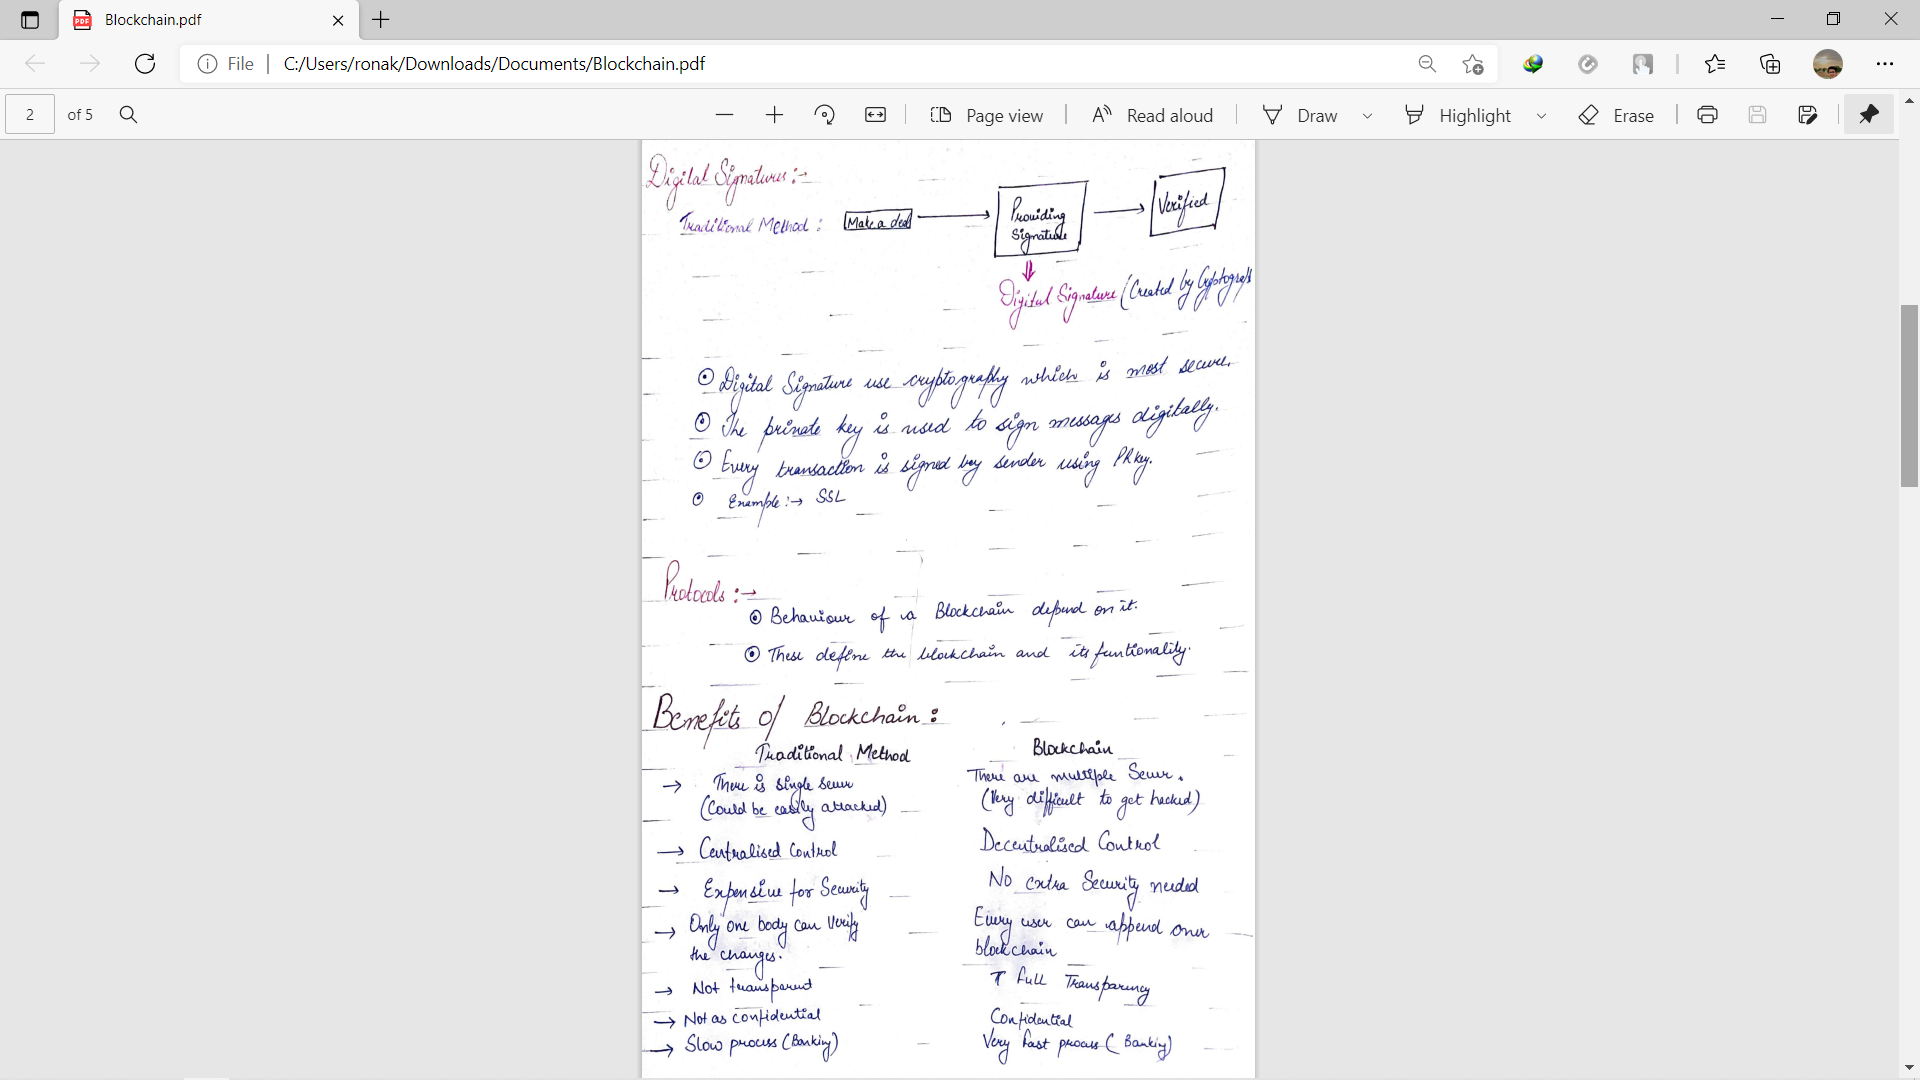 Blockchain.pdf
File
C:/Users/ronak/Downloads/Documents/Blockchain.pdf
2 of 5
Page view
Read aloud
Draw
Highlight
Erase
Digital Signatures :→
Traditional Method :
Make a deal
Providing
Signature
Verified
Digital Signature (Created by
⊙ Digital Signature use cryptography which is most secure.
⊙ The private key is used to sign messages digitally.
⊙ Every transaction is signed by sender using PR key.
⊙ Example :→ SSL
Protocols :→
⊙ Behaviour of a Blockchain depend on it.
⊙ These define the blockchain and its funtionality.
Benefits of Blockchain :
Traditional Method Blockchain
→ There is single sever There are multiple Sever.
(Could be easily attacked) (Very difficult to get hacked)
→ Centralised Control Decentralised Control
→ Expensive for Security No extra Security needed
→ Only one body can verify Every user can append over
the changes. blockchain
→ Not transparent ↑ full Transparency
→ Not as confidential Confidential
→ Slow process (Banking) Very fast process (Banking)